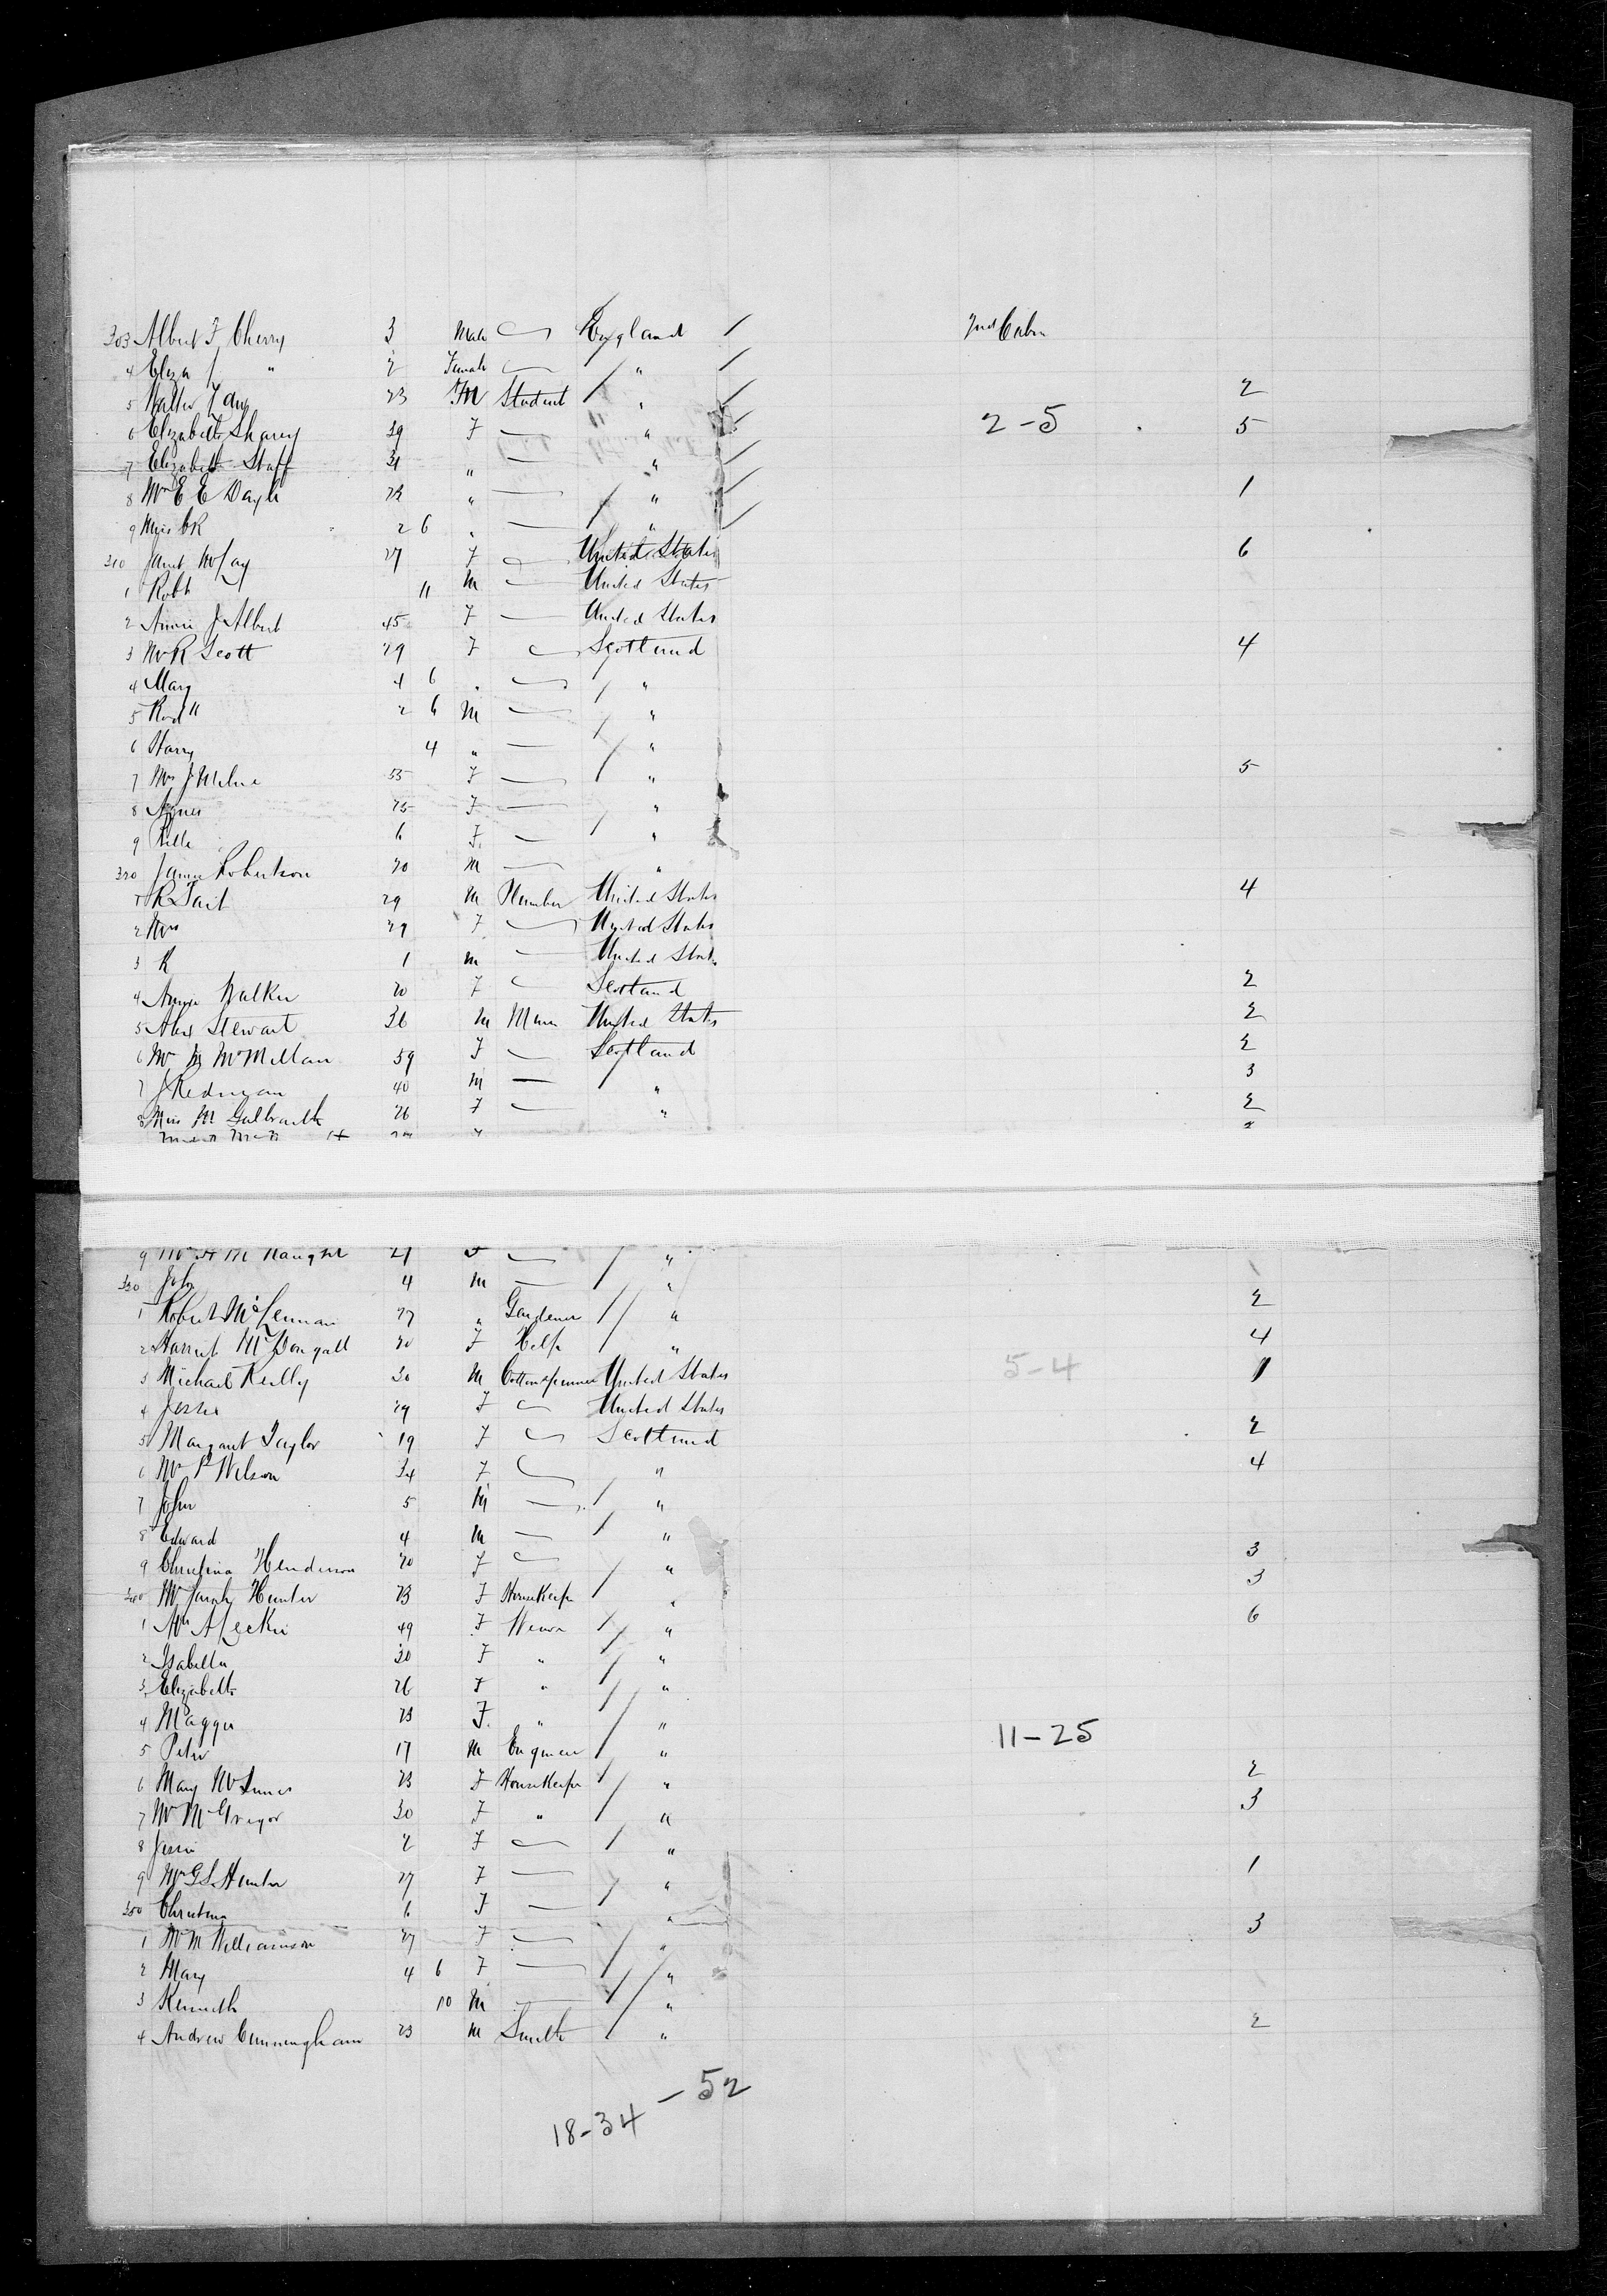 303 Albert F Cherry 3 Male — England / 2nd Cabin
4 Eliza " 2 Female — " /
5 Walter 23 M Student " / 2
6 Elizabeth Sharey 39 F — " / 2-5 5
7 Elizabeth Staff 31 " — " /
8 Mrs E E Dayle 23 " — " / 1
9 Miss 2 6 " — " /
310 Janet McLay 27 F — United States 6
1 Robt 11 M — United States
2 Annie J Albert 45 F — United States
3 Mrs R Scott 29 F — Scotland 4
4 Mary 4 6 " — "
5 Rod" 2 6 M — "
6 Harry 4 " — "
7 Mrs J Milne 55 F — " 5
8 Agnes 25 F — "
9 Bella 6 F. — "
320 James Robertson 20 M — "
1 R Tait 29 M Plumber United States 4
2 Mrs 29 F — United States
3 R 1 M — United States
4 Walker 20 F — Scotland 2
5 Alex Stewart 36 M United States 2
6 Mrs McMillan 59 F — Scotland 2
7 J Redman 40 M — " 3
8 Miss M Galbraith 26 F — " 2
9 21 F — "
330 John 4 M — "
1 Robert McLennan 27 " Gardener " 2
2 Harriet McDougall 20 F Help " 4
3 Michael Reilly 30 M Cottonspinner United States 5-4 1
4 Jessie 29 F — United States
5 Margaret Taylor 19 F — Scotland 2
6 Mrs P Wilson 34 F — " 4
7 John 5 M — "
8 Edward 4 M — "
9 Christina Henderson 20 F — " 3
340 Hunter 23 F HouseKeeper " 3
1 Mrs A Leckie 49 F Weaver " 6
2 Isabella 30 F " "
3 Elizabeth 26 F " "
4 Maggie 23 F. " "
5 Peter 17 M Engineer " 11-25
6 Mary McInnes 23 F HouseKeeper " 2
7 Mrs McGregor 30 F " " 3
8 Jessie 2 F — "
9 Mrs G S Hunter 27 F — " 1
350 Christina 6 F — "
1 Mrs M Williamson 27 F — " 3
2 Mary 4 6 F — "
3 Kenneth 10 M — "
4 Andrew Cunningham 23 M Smith " 2
18-34 – 52